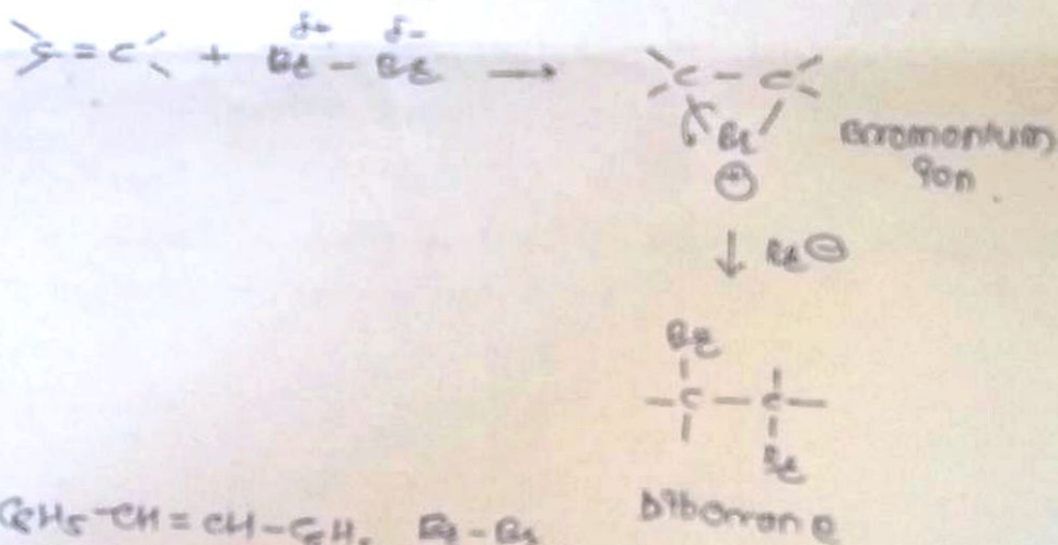 δ+ δ-
C = C + Br - Br →
C - C
Br
⊕
Bromonium
Ion.
↓ Br ⊖
Br
- C - C -
Br
Dibomane
C6H5-CH=CH-C6H5 Br-Br